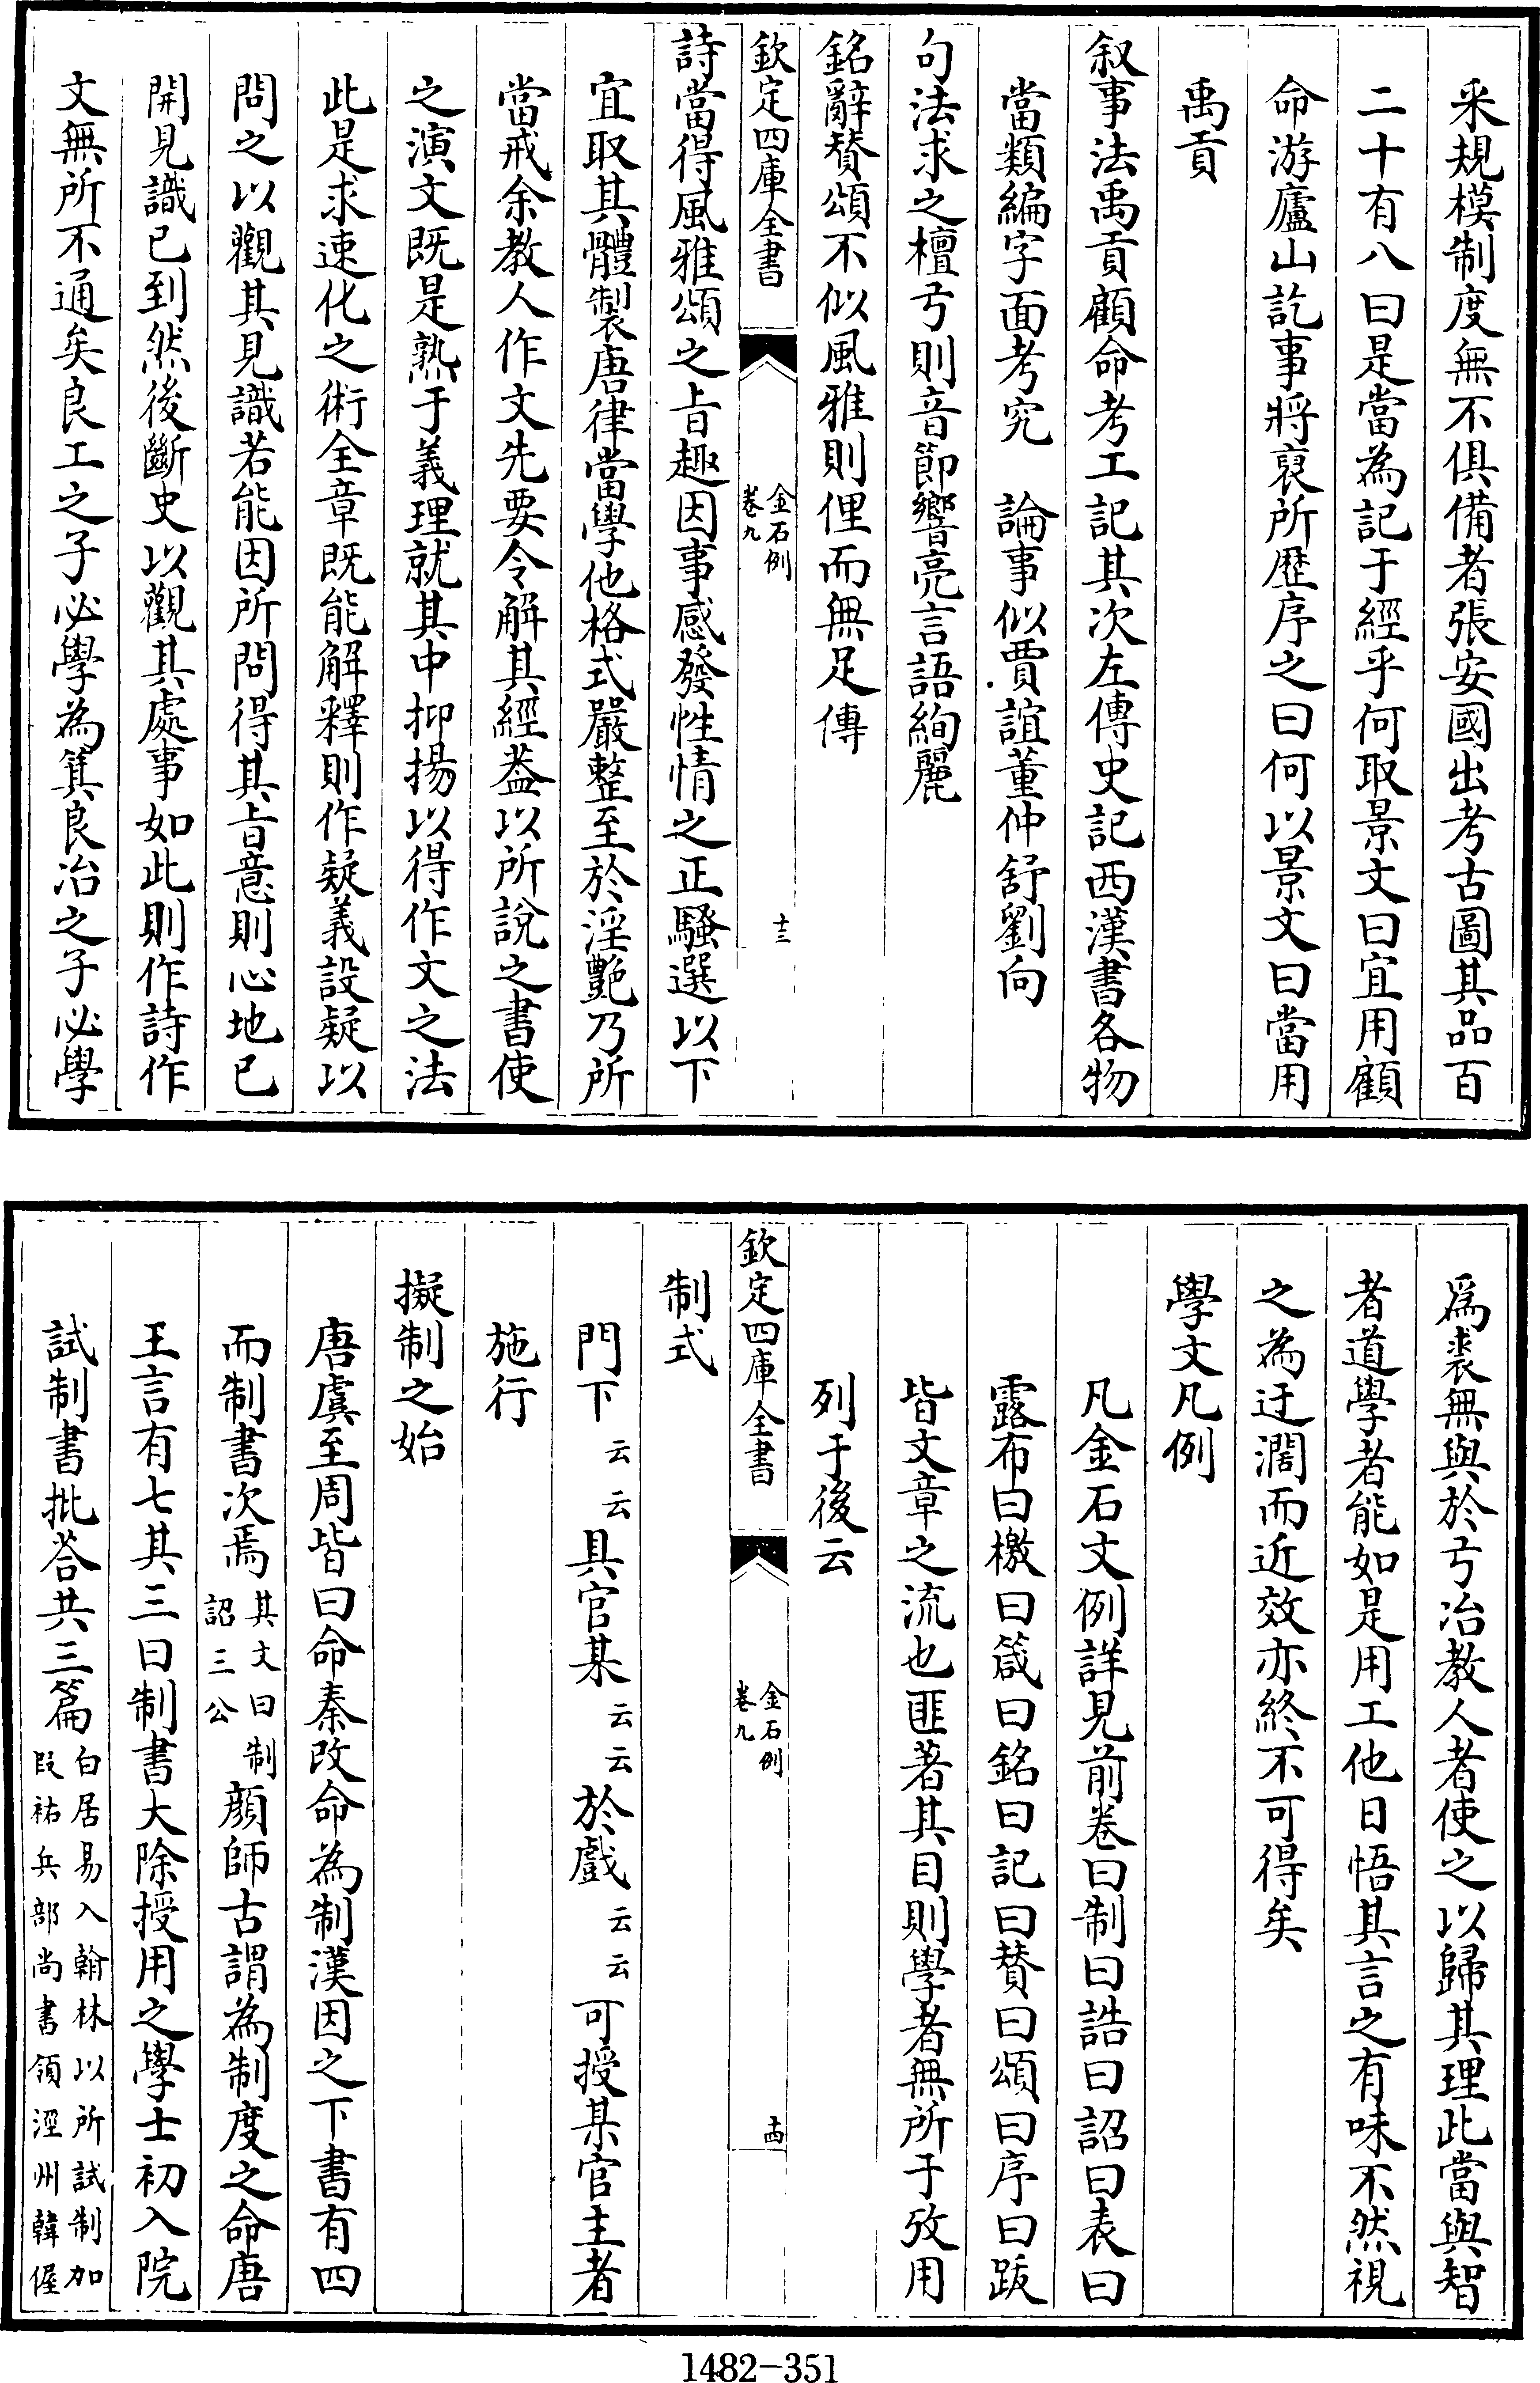 釆規模制度無不俱備者張安國出考古圖其品百
二十有八曰是當為記于經乎何取景文曰宜用顧
命游廬山訖事將裒所歷序之曰何以景文曰當用
禹貢
叙事法禹貢顧命考工記其次左傳史記西漢書各物
當類編字面考究　論事似賈誼董仲舒劉向
句法求之檀弓則音節響亮言語絢麗
銘辭賛頌不似風雅則俚而無足傳
欽定四庫全書
金石例
卷九
十三
詩當得風雅頌之旨趣因事感發性情之正騷選以下
宜取其體製唐律當學他格式嚴整至於淫艷乃所
當戒余教人作文先要令解其經葢以所說之書使
之演文既是熟于義理就其中抑揚以得作文之法
此是求速化之術全章既能解釋則作疑義設疑以
問之以觀其見識若能因所問得其旨意則心地已
開見識已到然後斷史以觀其處事如此則作詩作
文無所不通矣良工之子必學為箕良冶之子必學
爲裘無與於弓冶教人者使之以歸其理此當與智
者道學者能如是用工他日悟其言之有味不然視
之為迂濶而近效亦終不可得矣
學文凡例
凡金石文例詳見前卷曰制曰誥曰詔曰表曰
露布曰檄曰箴曰銘曰記曰賛曰頌曰序曰跋
皆文章之流也匪著其目則學者無所于攷用
列于後云
欽定四庫全書
金石例
卷九
十四
制式
門下云云具官某云云於戲云云可授某官主者
施行
擬制之始
唐虞至周皆曰命秦改命為制漢因之下書有四
而制書次焉其文曰制詔三公顔師古謂為制度之命唐
王言有七其三曰制書大除授用之學士初入院
試制書批荅共三篇白居易入翰林以所試制加段祐兵部尚書領涇州韓偓
1482-351